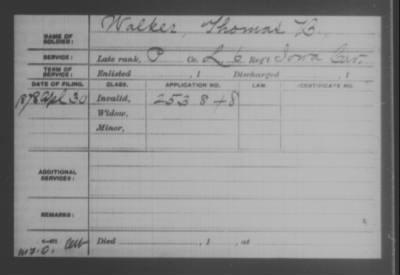 Walker, Thomas
NAME OF SOLDIER:
SERVICE: Late rank, P Co. L, 6 Reg't Iowa Cav.
TERM OF SERVICE: Enlisted , 1 Discharged , 1
DATE OF FILING. CLASS. APPLICATION NO. LAW. CERTIFICATE NO.
1878 Apl 30 Invalid, 253848
Widow,
Minor,
ADDITIONAL SERVICES:
REMARKS:
Died , 1 , at